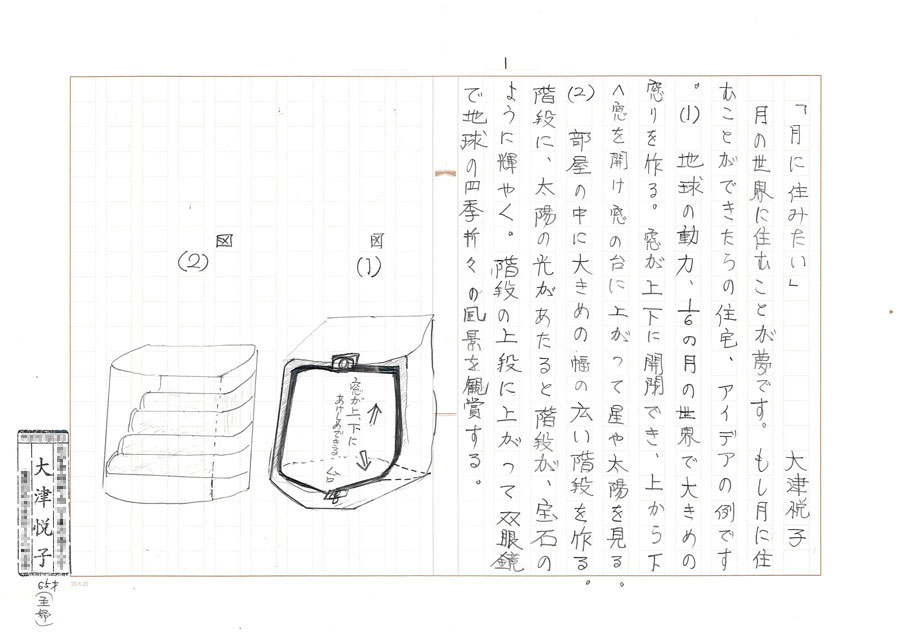 1
「月に住みたい」 大津悦子
月の世界に住むことが夢です。もし月に住
むことができたらの住宅、アイデアの例です
。(1) 地球の動力、1/6の月の世界で大きめの
窓りを作る。窓が上下に開閉でき、上から下
へ窓を開け窓の台に上がって星や太陽を見る。
(2) 部屋の中に大きめの幅の広い階段を作る。
階段に、太陽の光があたると階段が、宝石の
ように輝やく。階段の上段に上がって双眼鏡
で地球の四季折々の風景を観賞する。
図(1)
図(2)
窓が上、下に
あけしめできる
台
大津悦子
65才
(主婦)
20×20